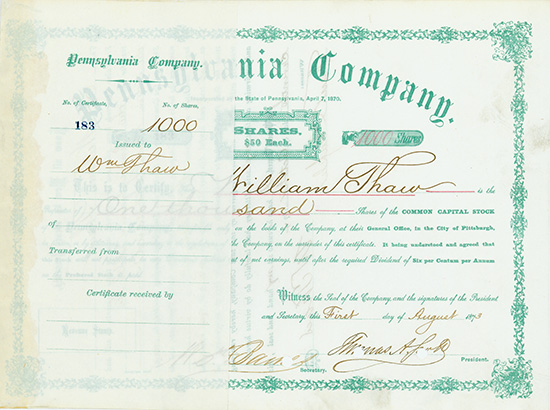 Pennsylvania Company.
No. of Certificate, No. of Shares,
183 1000
Issued to
Wm Thaw
of
Transferred from
Certificate received by
nia Company.
the State of Pennsylvania, April 7, 1870.
SHARES.
$50 Each.
No 1000 Shares
William Thaw is the
One thousand Shares of the COMMON CAPITAL STOCK
on the books of the Company, at their General Office, in the City of Pittsburgh,
the Company, on the surrender of this certificate. It being understood and agreed that
out of net earnings, until after the required Dividend of Six per Centum per Annum
Witness the Seal of the Company, and the signatures of the President
and Secretary, this First day of August 1873
Thomas A Scott
Secretary. President.